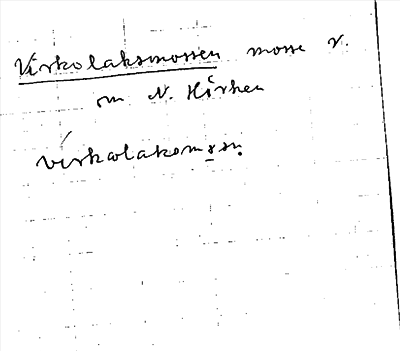 Virkolaksmossen mosse v.
om N. Hörken
virkolakomsn